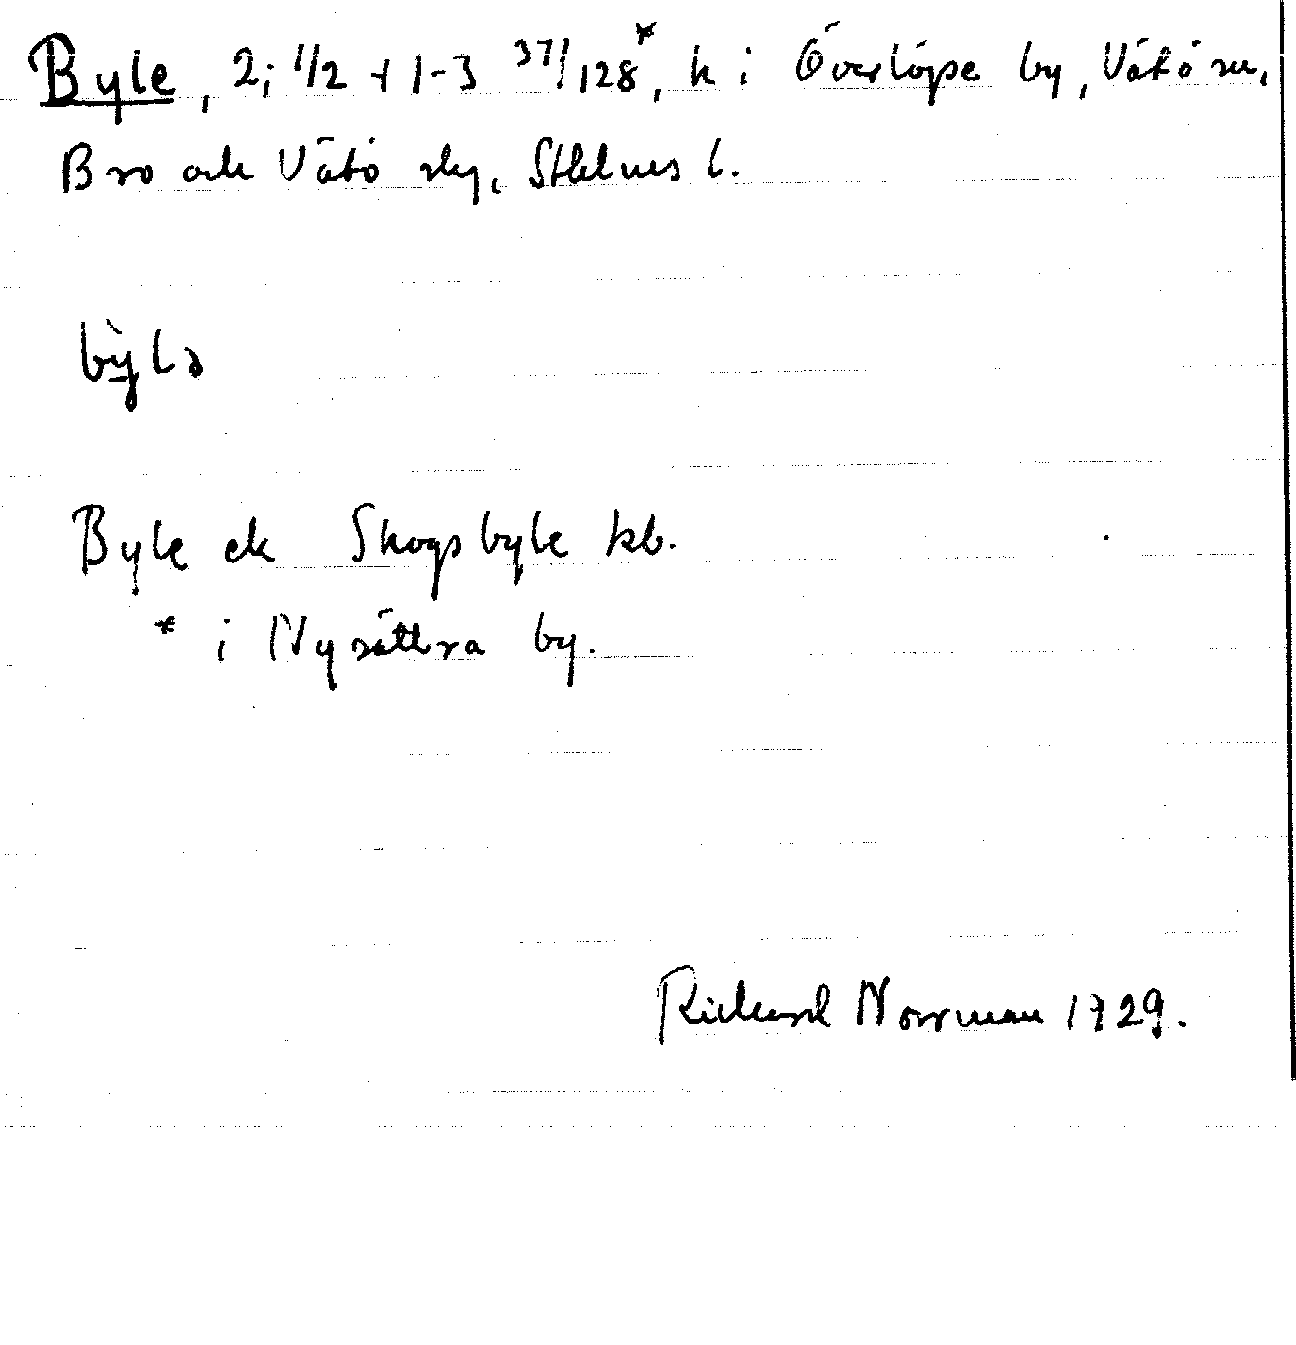 Byle, 2; 1/2 + 1-3 37/128*, k i Överlöpe by, Vätö sn,
Bro och Vätö slg, Sthlms l.
bỳlə
Byle ek Skogsbyle kb.
* i Nysättra by.
Rickard Norrman 1929.